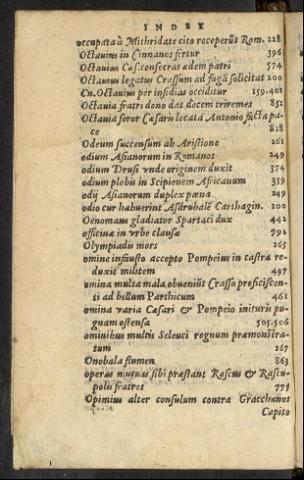 INDEX
occupata à Mithridate cito receperūt Rom. 228
Octauius in Cinnanes fertur 396
Octauius Cæs. consecrat ædem patri 574
Octauius legatus Crassum ad fugā solicitat 200
Cn. Octauius per insidias occiditur 159.401
Octauia fratri dono dat decem triremes 851
Octauia soror Cæsaris locata Antonio facta pa-
ce 828
Odeum succensum ab Aristione 261
odium Asianorum in Romanos 249
odium Drusi vnde originem duxit 374
odium plebis in Scipionem Africanum 359
odij Asianorum duplex pœna 249
odio cur habuerint Asdrubalē Carthagin. 100
Oenomaus gladiator Spartaci dux 442
officinæ in vrbe clausæ 792
Olympiadis mors 265
omine infausto accepto Pompeius in castra re-
duxit militem 497
omina multa mala obueniūt Crasso proficiscen-
ti ad bellum Parthicum 461
omina varia Cæsari & Pompeio inituris pu-
gnam ostensa 505.506
ominibus multis Seleuci regnum præmonstra-
tum 167
Onobala flumen 863
operas mutuas sibi præstant Rascus & Rascu-
polis fratres 779
Opimius alter consulum contra Gracchanos
Capito